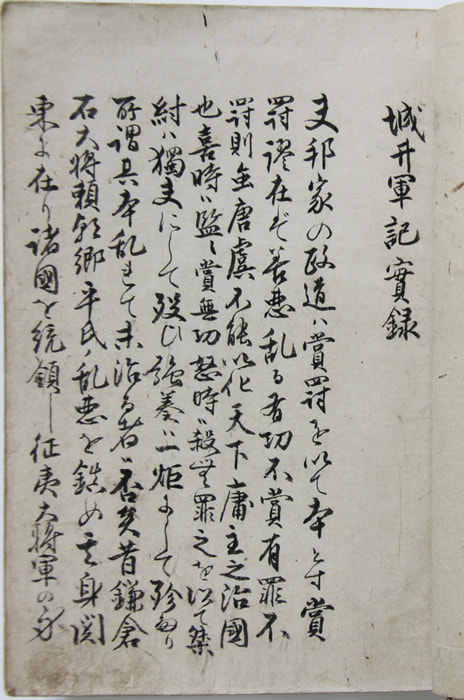 城井軍記實録
夫邦家の政道ハ賞罸を以て本とす賞
罸謬在ざれバ善悪乱る有功不賞有罪不
罸則雖唐虞不能以化天下庸主之治國
也喜時ハ監賞無功怒時ハ殺無罪之を以て桀
紂ハ獨夫にして殺ひ強秦ハ一炬にして殄
所謂其本乱而末治る者ハ否矣昔鎌倉
右大将頼朝郷平氏ノ乱悪を鎮め其身関
東に在り諸國を統領し征夷大将軍の